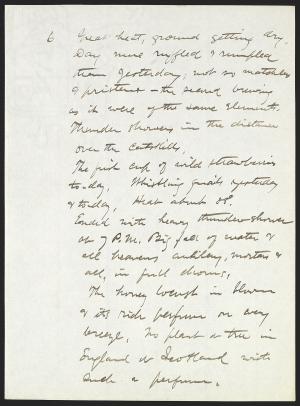 6 Great heat, ground getting dry.
Day more ruffled & rumpled
than yesterday; not so matchless
& pristine - the second brewing
as it were of the same elements,
Thunder showers in the distance
over the Catskills,
The first cup of wild strawberries
to-day, Whistling quails yesterday
& to-day, Heat about 88°.
Ended with heavy thunder-shower
at 7 P.M. Big fall of water &
all heavens artillery, mortars &
all, in full chorus,
The honey locust in bloom
& its rich perfume on every
breeze, No plant or tree in
England or Scotland with
such a perfume.